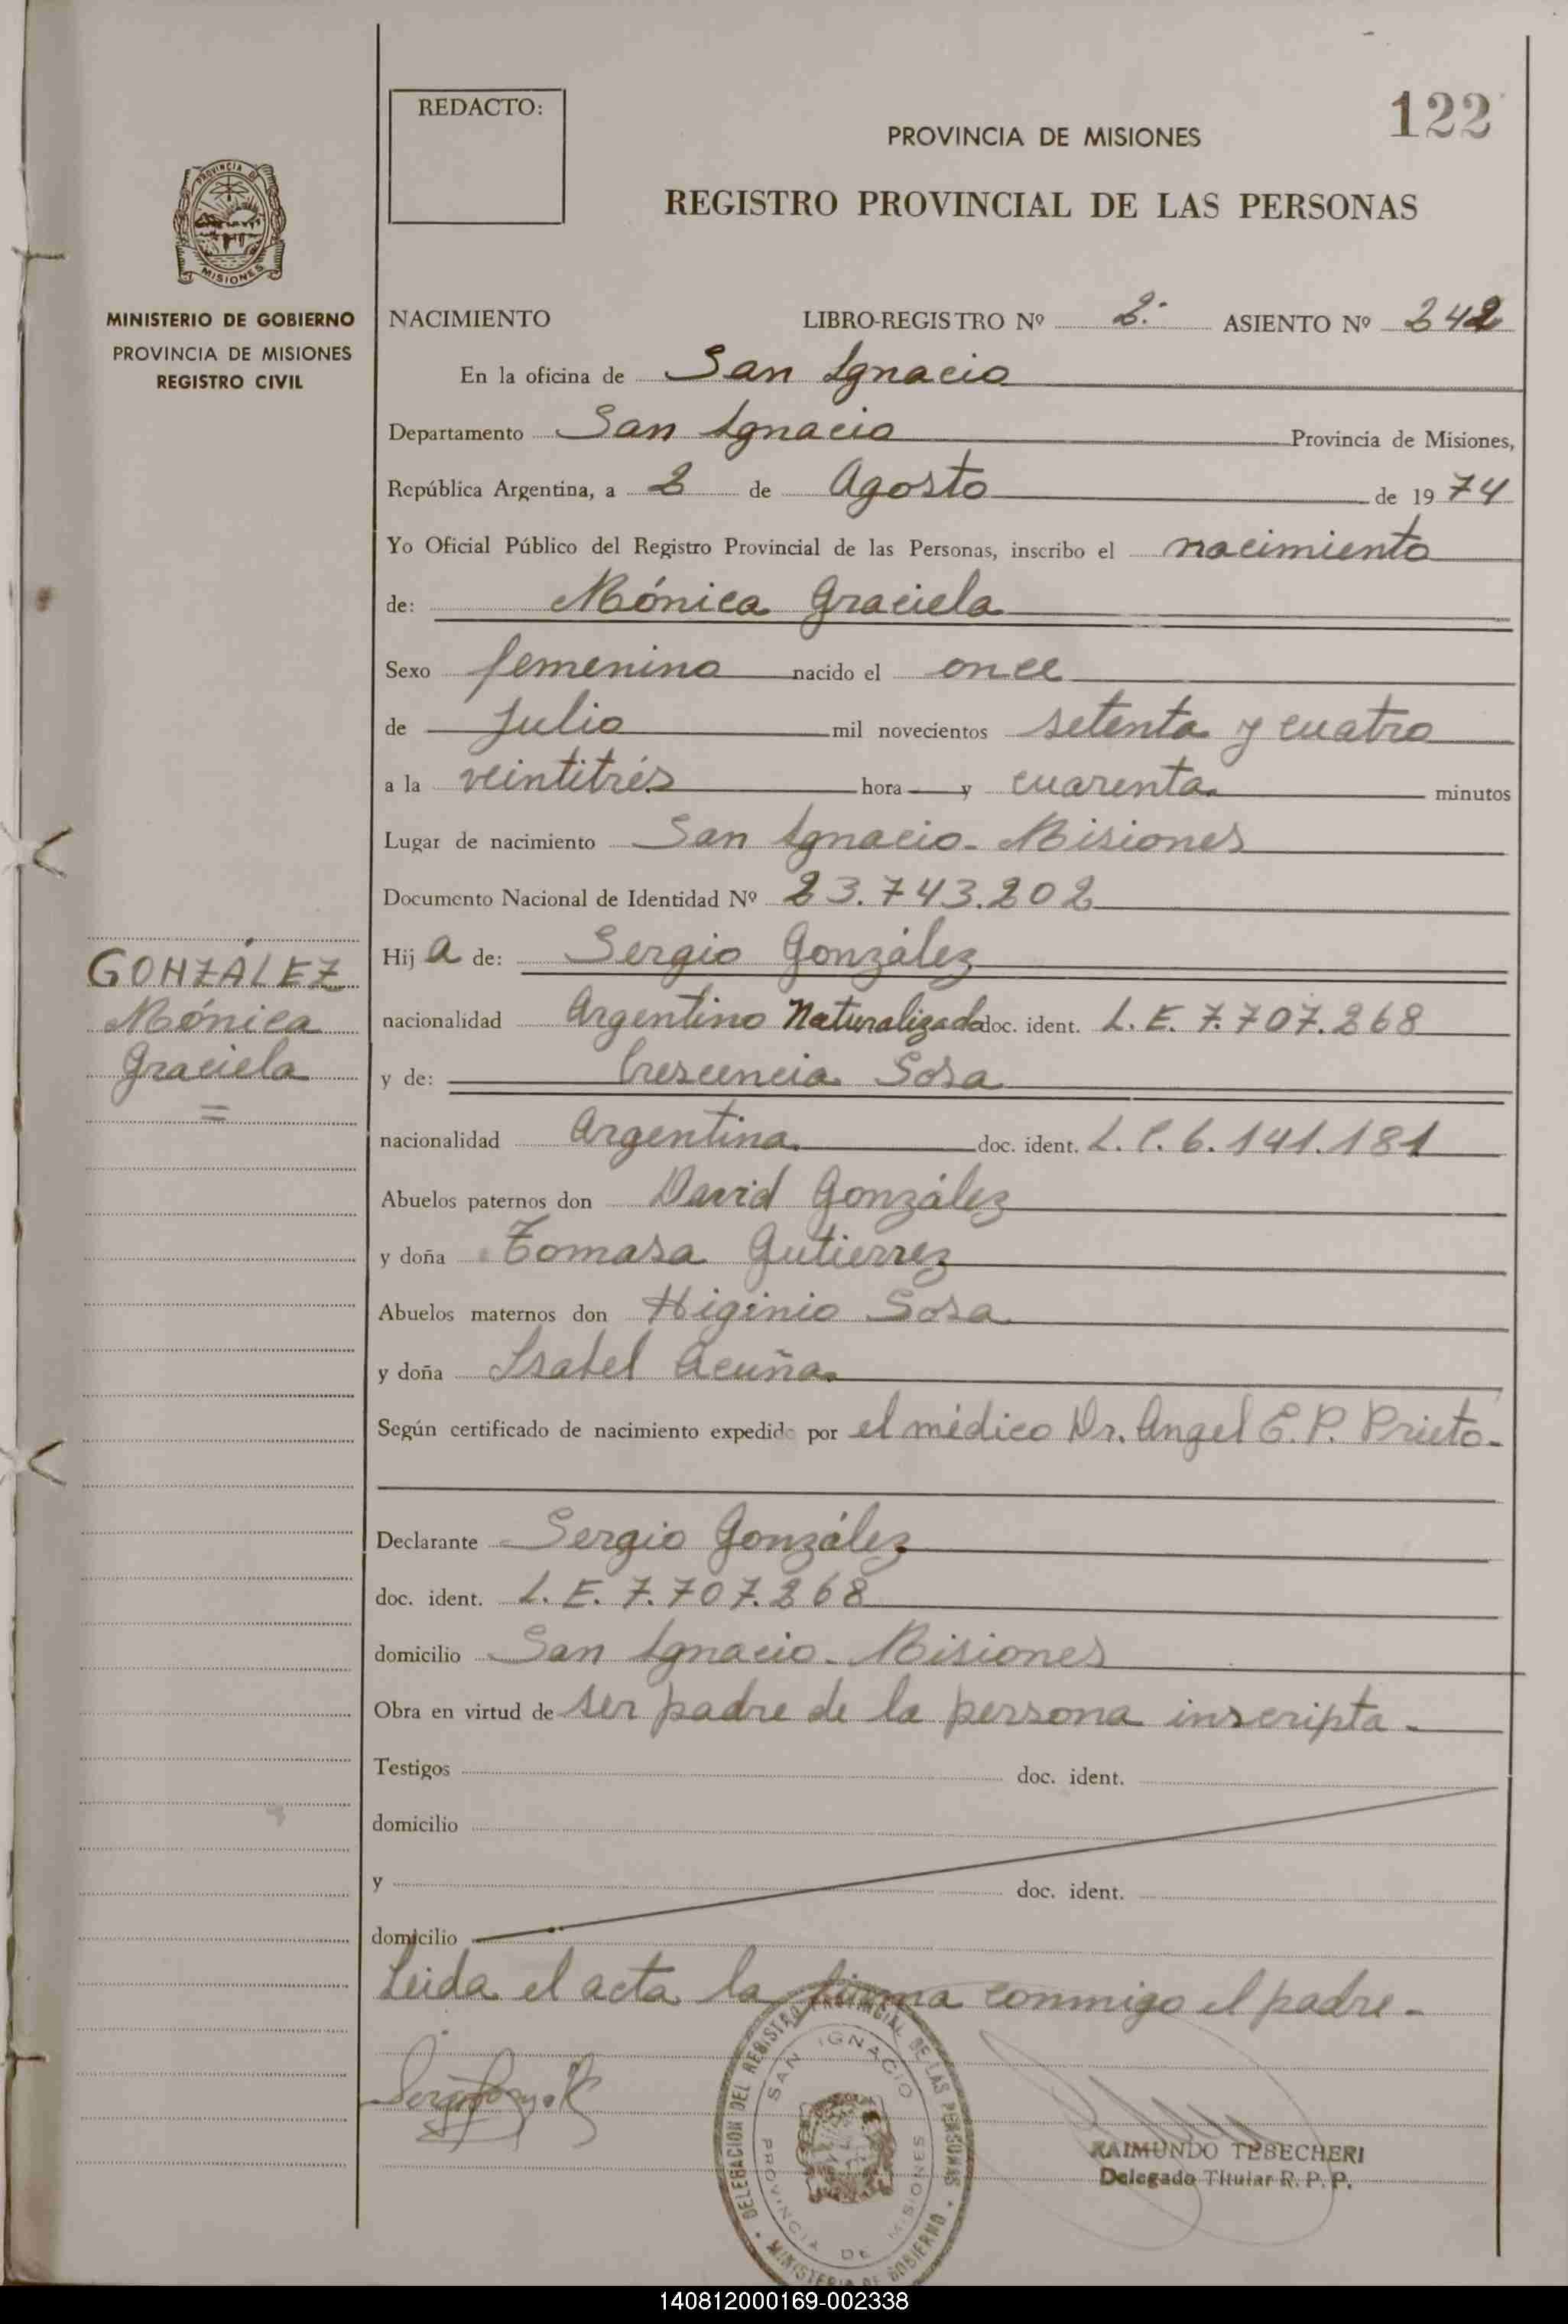 REDACTO:
122
PROVINCIA DE MISIONES
REGISTRO PROVINCIAL DE LAS PERSONAS
PROVINCIA DE
MISIONES
MINISTERIO DE GOBIERNO
PROVINCIA DE MISIONES
REGISTRO CIVIL
NACIMIENTO LIBRO-REGISTRO Nº 2º ASIENTO Nº 242
En la oficina de San Ignacio
Departamento San Ignacio Provincia de Misiones,
República Argentina, a 2 de Agosto de 1974
Yo Oficial Público del Registro Provincial de las Personas, inscribo el nacimiento
de: Mónica Graciela
Sexo femenino nacido el once
de Julio mil novecientos setenta y cuatro
a la veintitrés hora y cuarenta minutos
Lugar de nacimiento San Ignacio - Misiones
Documento Nacional de Identidad Nº 23.743.202
GONZÁLEZ
Mónica
Graciela
Hija de: Sergio González
nacionalidad Argentino Naturalizado doc. ident. L. E. 7.707.268
y de: Crescencia Sosa
nacionalidad Argentina doc. ident. L. C. 6.141.181
Abuelos paternos don David González
y doña Tomasa Gutierrez
Abuelos maternos don Higinio Sosa
y doña Isabel Acuña
Según certificado de nacimiento expedido por el médico Dr. Angel E. P. Prieto.
Declarante Sergio González
doc. ident. L. E. 7.707.268
domicilio San Ignacio - Misiones
Obra en virtud de ser padre de la persona inscripta.
Testigos doc. ident.
domicilio
y doc. ident.
domicilio
Leida el acta la firma conmigo el padre.
DELEGACION DEL REGISTRO PROVINCIAL DE LAS PERSONAS
MINISTERIO DE GOBIERNO
SAN IGNACIO
PROVINCIA DE MISIONES
RAIMUNDO TEBECHERI
Delegado Titular R. P. P.
140812000169-002338